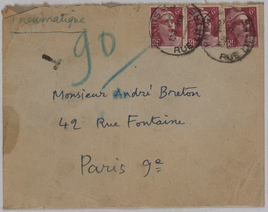 Pneumatique
90
Monsieur André Breton
42 Rue Fontaine
Paris 9e